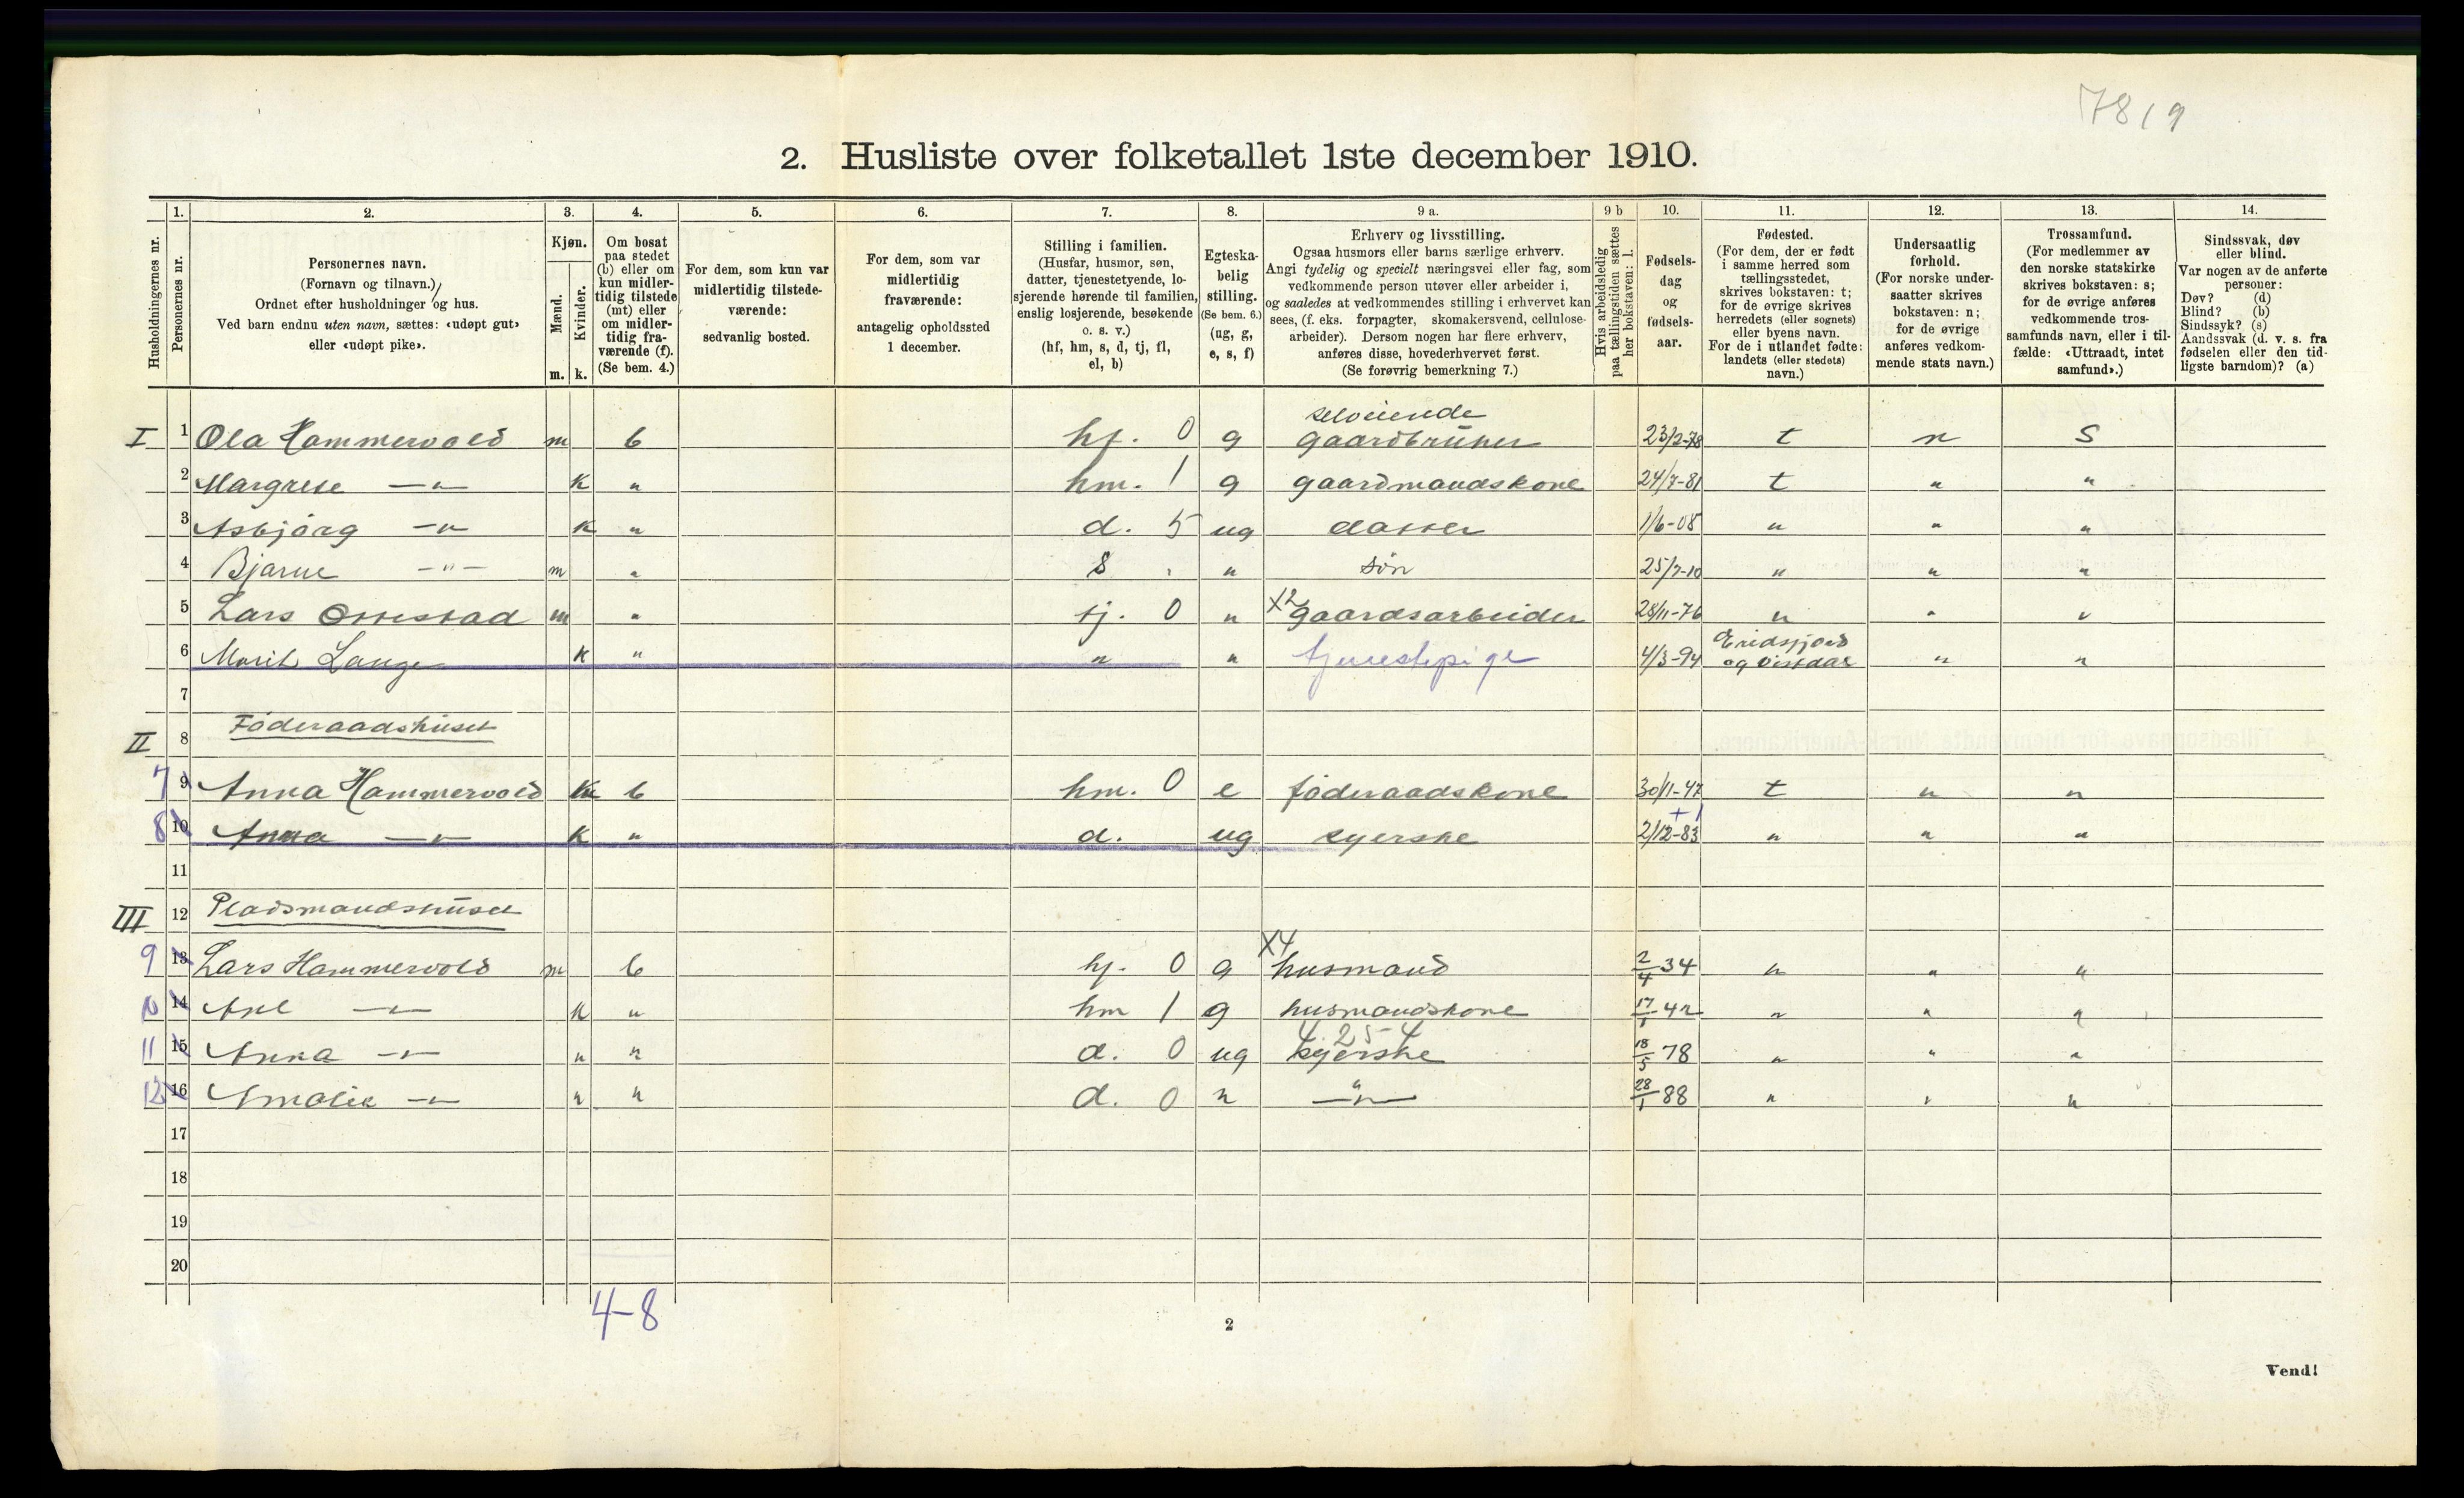 7819
2. Husliste over folketallet 1ste december 1910.
1. 2. 3. 4. 5. 6. 7. 8. 9 a. 9 b 10. 11. 12. 13. 14.
Husholdningernes nr.
Personernes nr.
Personernes navn.
(Fornavn og tilnavn.)
Ordnet efter husholdninger og hus.
Ved barn endnu uten navn, sættes: «udøpt gut»
eller «udøpt pike».
Kjøn.
Mænd.
Kvinder.
m. k.
Om bosat
paa stedet
(b) eller om
kun midler-
tidig tilstede
(mt) eller
om midler-
tidig fra-
værende (f).
(Se bem. 4.)
For dem, som kun var
midlertidig tilstede-
værende:
sedvanlig bosted.
For dem, som var
midlertidig
fraværende:
antagelig opholdssted
1 december.
Stilling i familien.
(Husfar, husmor, søn,
datter, tjenestetyende, lo-
sjerende hørende til familien,
enslig losjerende, besøkende
o. s. v.)
(hf, hm, s, d, tj, fl,
el, b)
Egteska-
belig
stilling.
(Se bem. 6.)
(ug, g,
e, s, f)
Erhverv og livsstilling.
Ogsaa husmors eller barns særlige erhverv.
Angi tydelig og specielt næringsvei eller fag, som
vedkommende person utøver eller arbeider i,
og saaledes at vedkommendes stilling i erhvervet kan
sees, (f. eks. forpagter, skomakersvend, cellulose-
arbeider). Dersom nogen har flere erhverv,
anføres disse, hovederhvervet først.
(Se forøvrig bemerkning 7.)
Hvis arbeidsledig
paa tællingstiden sættes
her bokstaven: l.
Fødsels-
dag
og
fødsels-
aar.
Fødested.
(For dem, der er født
i samme herred som
tællingsstedet,
skrives bokstaven: t;
for de øvrige skrives
herredets (eller sognets)
eller byens navn.
For de i utlandet fødte:
landets (eller stedets)
navn.)
Undersaatlig
forhold.
(For norske under-
saatter skrives
bokstaven: n;
for de øvrige
anføres vedkom-
mende stats navn.)
Trossamfund.
(For medlemmer av
den norske statskirke
skrives bokstaven: s;
for de øvrige anføres
vedkommende tros-
samfunds navn, eller i til-
fælde: «Uttraadt, intet
samfund».)
Sindssvak, døv
eller blind.
Var nogen av de anførte
personer:
Døv? (d)
Blind? (b)
Sindssyk? (s)
Aandssvak (d. v. s. fra
fødselen eller den tid-
ligste barndom)? (a)
selveiende
I 1 Ola Hammervold m b hf. 0 g gaardbruker 23/2-78 t n S
2 Margrete —"— k " hm. 1 g gaardmandskone 24/7-81 t " "
3 Asbjörg —"— k " d. 5 ug datter 1/6-08 " " "
4 Bjarne —"— m " s " søn 25/7-10 " " "
5 Lars Ottestad m " tj. 0 " X2 gaardsarbeider 28/11-76 " " "
6 Marit Lange k " " " tjenestepige 4/3-94 Eridsfjord og Vistdal " "
7
Föderaadshuset
II 8
7 9 Anna Hammervold k b hm. 0 e föderaadskone 30/11-47 t " "
8 10 Anna —"— k " d. ug syerske 2/12-83 " " "
11
III 12 Pladsmandshuset
9 13 Lars Hammervold m b hf. 0 g X4 husmand 2/4 34 " " "
10 14 Ane —"— k " hm 1 g husmandskone 17/1 42 " " "
4254
11 15 Anna —"— " " d. 0 ug syerske 18/5 78 " " "
12 16 Amalie —"— " " d. 0 " —"— 28/1 88 " " "
17
18
19
20
4-8
2
Vend!